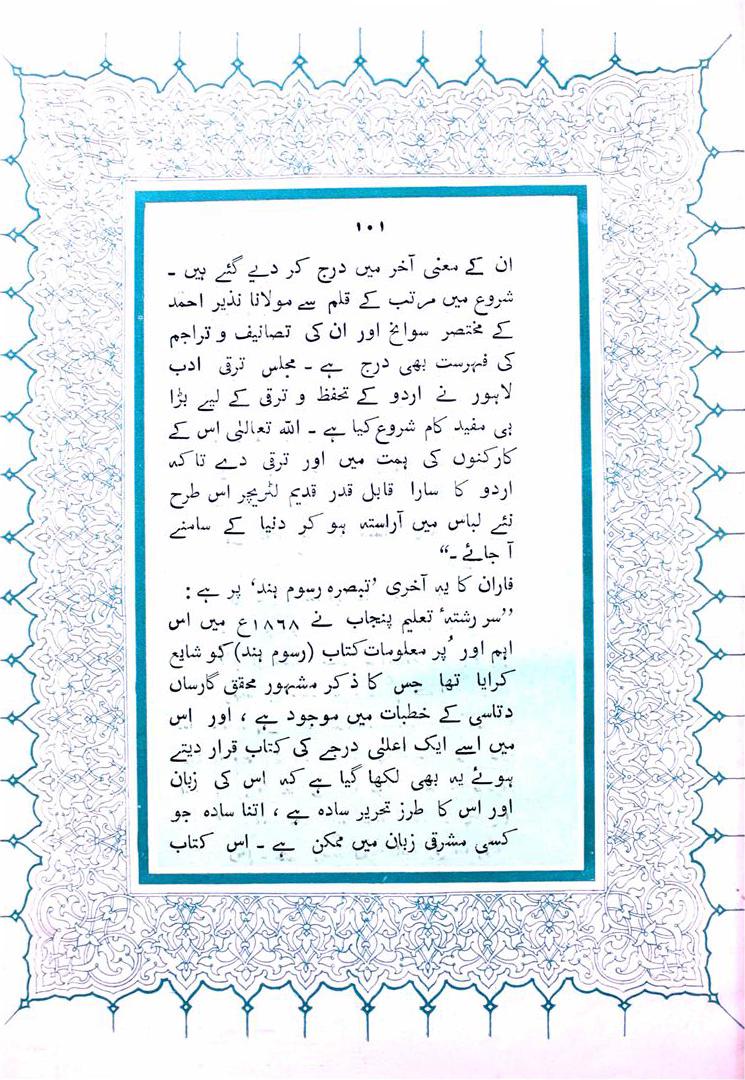 ۱۰۱
ان کے معنی آخر میں درج کر دیے گئے ہیں ۔
شروع میں مرتب کے قلم سے مولانا نذیر احمد
کے مختصر سوانح اور ان کی تصانیف و تراجم
کی فہرست بھی درج ہے ۔ مجلس ترقی ادب
لاہور نے اردو کے تحفظ و ترقی کے لیے بڑا
ہی مفید کام شروع کیا ہے ۔ اللہ تعالیٰ اس کے
کارکنوں کی ہمت میں اور ترقی دے تاکہ
اردو کا سارا قابل قدر قدیم لٹریچر اس طرح
نئے لباس میں آراستہ ہو کر دنیا کے سامنے
آ جائے ۔“
فاران کا یہ آخری ’تبصرہ رسوم ہند‘ پر ہے :
”سر رشتهٔ تعلیم پنجاب نے ۱۸۶۸ع میں اس
اہم اور ُپر معلومات کتاب (رسوم ہند) کو شایع
کرایا تھا جس کا ذکر مشہور محقق گارساں
دتاسی کے خطبات میں موجود ہے ، اور اس
میں اسے ایک اعلیٰ درجے کی کتاب قرار دیتے
ہوئے یہ بھی لکھا گیا ہے کہ اس کی زبان
اور اس کا طرز تحریر سادہ ہے ، اتنا سادہ جو
کسی مشرقی زبان میں ممکن ہے ۔ اس کتاب